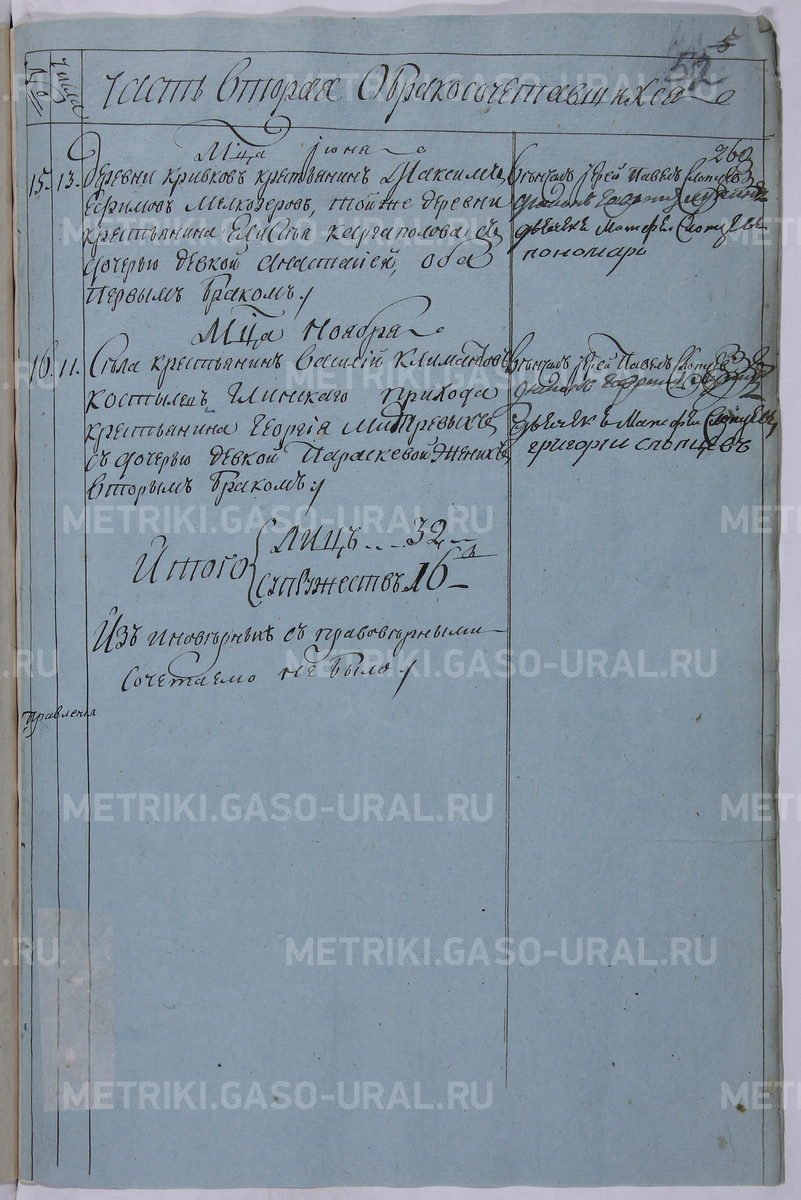 52
5
№
числа
Часть вторая О бракосочетавшихся
Мца июня
260
15. 13. Деревни Кривковъ крестьянинъ Максимъ
Ефимовъ Мелкозеровъ, тойже деревни
крестьянина Елисѣя Каргаполова съ
дочерью девкой Анастасией, оба
первымъ бракомъ
Венчалъ иерей Павелъ
дьячекъ Матфей Слопцевъ
пономарь
Мца Ноября
16. 11. Села крестьянинъ Василий Климантовъ
Костылевъ Глинскаго прихода
крестьянина Георгia Митревыхъ
съ дочерью девкой Параскевой Женихъ
вторымъ бракомъ
Венчалъ иерей Павелъ
дьячекъ Матфей Слопцевъ
Григории Слопцевъ
Итого лицъ 32
супружествъ 16
Изъ иноверныхъ съ правоверными
сочетаемо не было
правления
METRIKI.GASO-URAL.RU